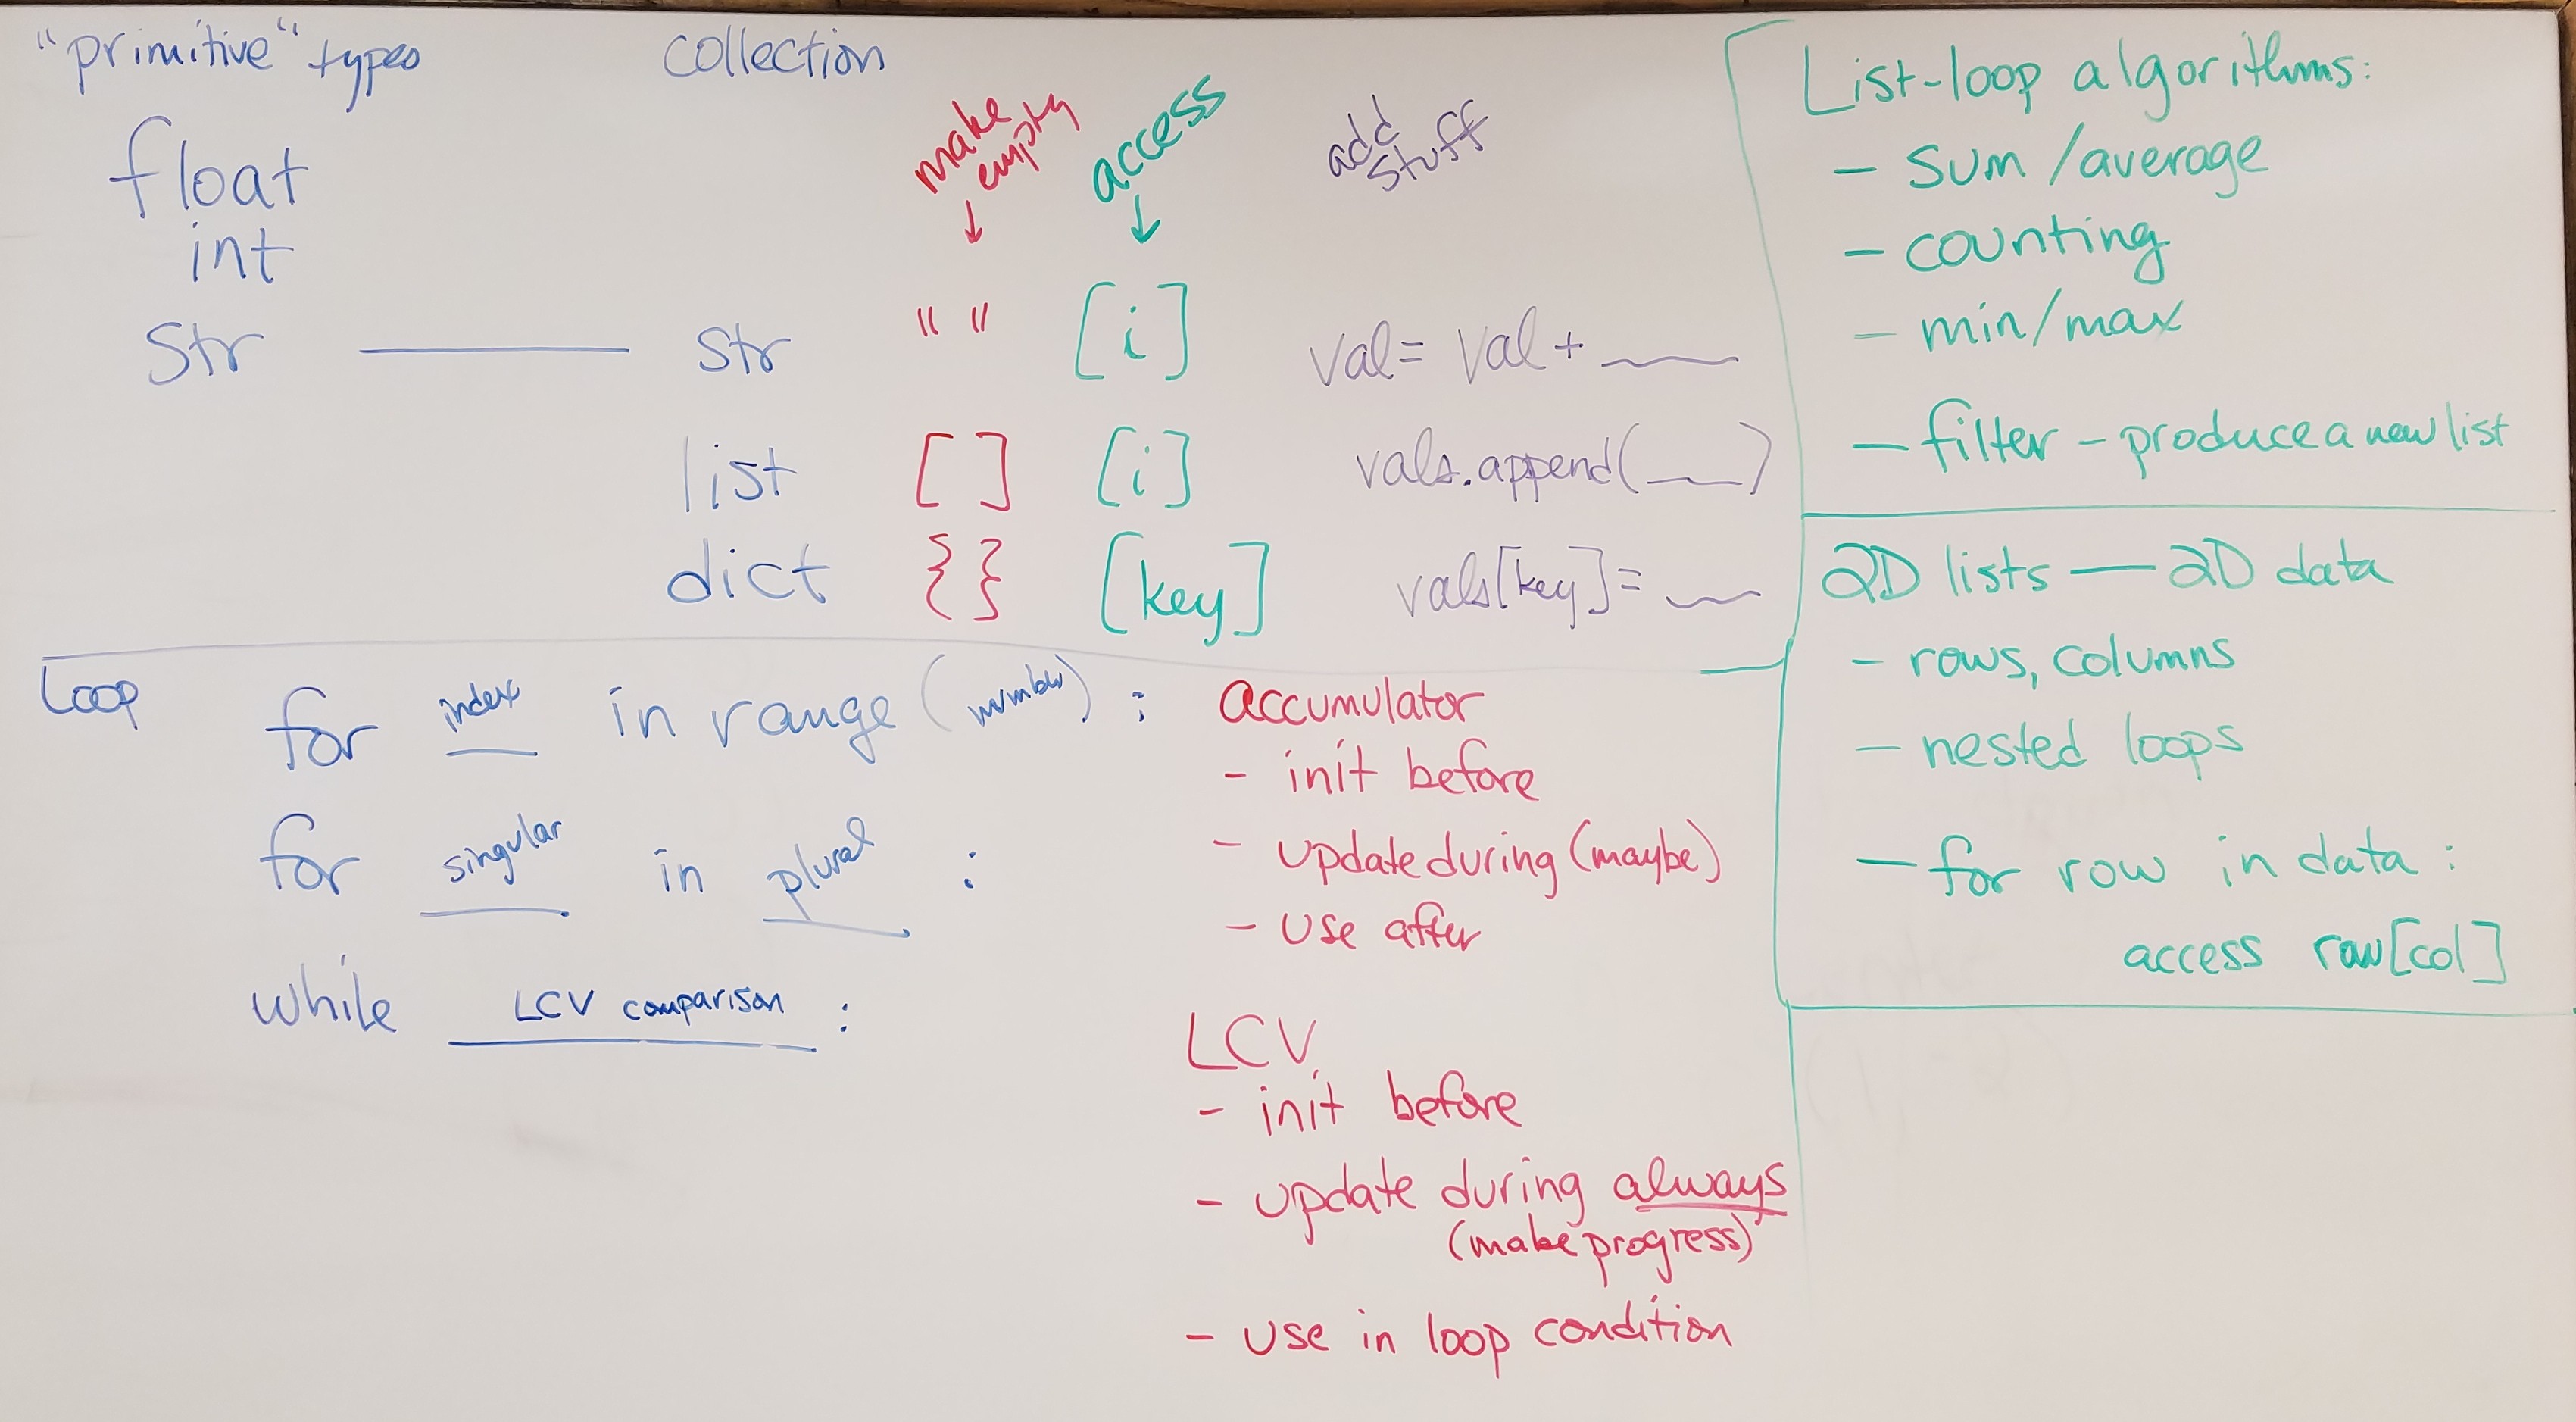 "primitive" types
float
int
Str
Collection
make empty
access
add stuff
str " " [i] val = val + ____
list [ ] [i] vals.append(____)
dict { } [key] vals[key] = ____
Loop
for index in range (number) :
for singular in plural :
while LCV comparison :
accumulator
- init before
- update during (maybe)
- use after
LCV
- init before
- update during always
(make progress)
- use in loop condition
List-loop algorithms:
- sum/average
- counting
- min/max
- filter - produce a new list
2D lists — 2D data
- rows, columns
- nested loops
- for row in data :
access row[col]